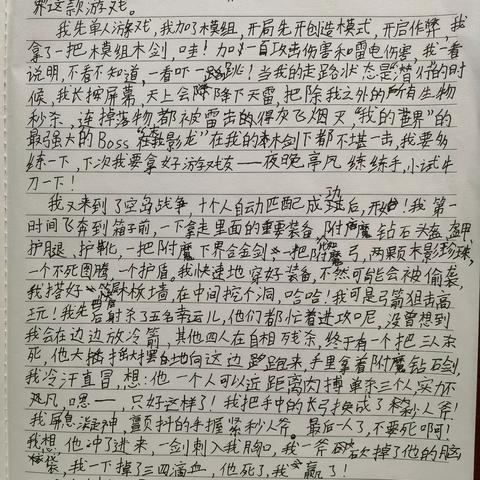 界这款游戏。
我先单人游戏,我加了模组,开局先开创造模式,开启作弊,我
拿了一把模组木剑,哇!加 攻击伤害和雷电伤害,我一看
说明,不看不知道,一看吓一跳!当我的走路状态是"潜行"的时
候,我长按屏幕,天上会降下天雷,把除我之外的所有生物
秒杀、连掉落物都被雷击的得灰飞烟灭"我的世界"的
最强大的Boss 影龙"在我的木剑下都不堪一击,我要多
练一下,下次我要拿好游戏友——夜晚亭风练练手,小试牛
刀一下!
我又来到了空岛战争,十个人自动匹配成功后,开始!我第一
时间飞奔到箱子前,一下拿走里面的重要装备,附魔钻石头盔、盔甲、
护腿、护靴,一把附魔下界合金剑、一把附魔弓,两颗末影珍珠,
一个不死图腾,一个护盾。我快速地穿好装备,不然可能会被偷袭,
我搭好 木板墙,在中间挖个洞,哈哈!我可是弓箭狙击高
玩!我先 后射杀了五名幸运儿,他们都忙着进攻呢,没曾想到
我会在边边放冷箭,其他四人在自相残杀,终于有一个把三人杀
死,他大摇大摆的地向这边跑来,手里拿着附魔钻石剑,
我冷汗直冒,想:他一个人可以近距离肉搏单杀三个人,实力不
凡。嗯——,只好这样了!我把手中的长弓换成了木秒人斧!
我屏息 神,颤抖的手握紧秒人斧。最后一人了,不要死啊!
我想,他冲了进来,一剑刺入我胸口,我一斧砍掉了他的脑
袋,我一下掉了三四滴血,他死了,我赢了!